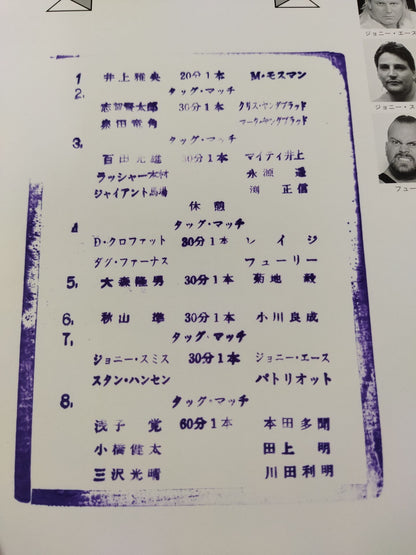 1 井上雅央 20分1本 M・モスマン
2. タッグ・マッチ
志賀賢太郎 30分1本 クリス・ヤングブラッド
泉田竜角 マーク・ヤングブラッド
3. タッグ・マッチ
百田光雄 30分1本 マイティ井上
ラッシャー木村 永源遥
ジャイアント馬場 渕正信
休憩
4 タッグ・マッチ
D・クロファット 30分1本 レイジ
ダグ・ファーナス フューリー
5. 大森隆男 30分1本 菊地毅
6. 秋山準 30分1本 小川良成
7. タッグ・マッチ
ジョニー・スミス 30分1本 ジョニー・エース
スタン・ハンセン パトリオット
8. タッグ・マッチ
浅子覚 60分1本 本田多聞
小橋健太 田上明
三沢光晴 川田利明
ジョニー・エース
ジョニー・ス
フュー